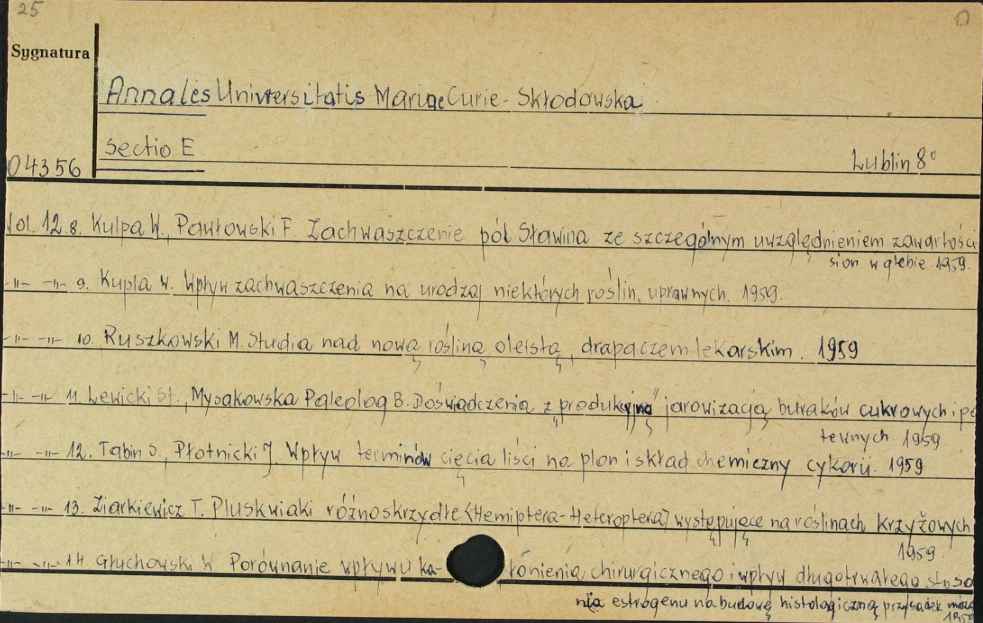 25
Sygnatura
Annales Universitatis Mariae Curie-Skłodowska
Sectio E
04356
Lublin 8°
Vol. 12.8. Kulpa W., Pawłowski F. Zachwaszczenie pól Sławina ze szczególnym uwzględnieniem zawartości
sion w glebie. 1959.
-"- -"- 9. Kupla W. Wpływ zachwaszczenia na urodzaj niektórych roślin uprawnych. 1959.
-"- -"- 10. Ruszkowski M. Studia nad nową rośliną oleistą, drapaczem lekarskim. 1959
-"- -"- 11. Lewicki St., Mysakowska Paleolog B. Doświadczenia z „produkcyjną" jarowizacją buraków cukrowych i pa
tewnych. 1959
-"- -"- 12. Tabin S., Płotnicki J. Wpływ terminów cięcia liści na plon i skład chemiczny cykorii. 1959
-"- -"- 13. Ziarkiewicz T. Pluskwiaki różnoskrzydłe (Hemiptera-Heteroptera) występujące na roślinach krzyżowych
1959
-"- -"- 14. Głuchowski W. Porównanie wpływu ka- łonienia chirurgicznego i wpływ długotrwałego stoso
nia estrogenu na budowę histologiczną przysadek
1959